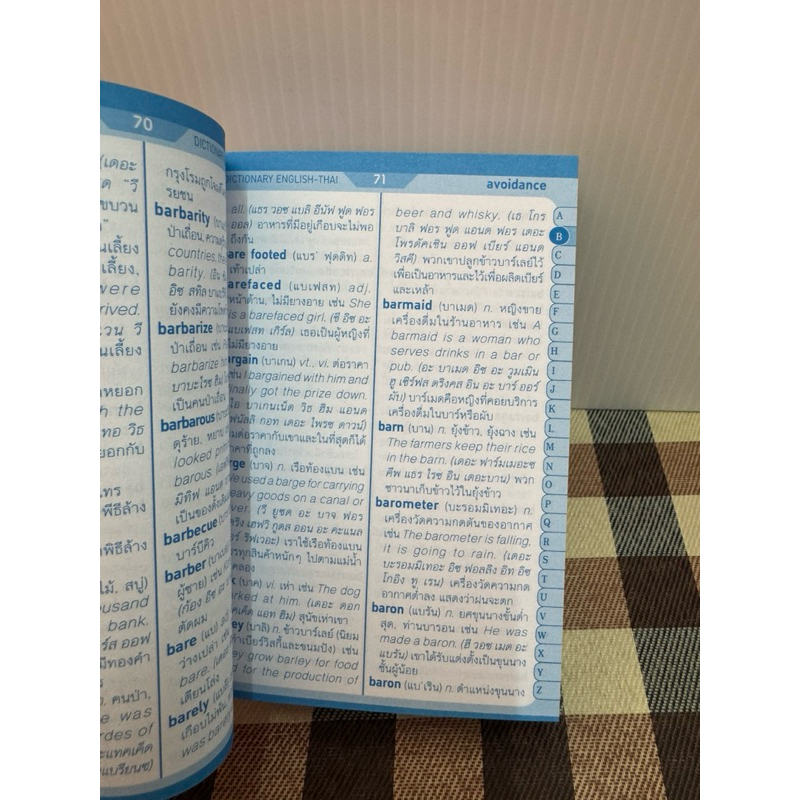 70
DICTIONARY
(เดอะ
ด "วี
ขบวน
นเลี้ยง
เลี้ยง,
were
rived.
เวน วี
นเลี้ยง
หยอก
h the
ทอ วิธ
ยอกกับ
ไทร
พิธีล้าง
พิธีล้าง
ไม้, สบู่)
ousand
bank.
ร์ส ออฟ
มีทองคำ
คนป่า,
e was
rdes of
กรุงโรมถูกโจมตี
รยชน
barbarity
ป่าเถื่อน, ความ
countries, the
barity.
อิซ สทิล บา
ยังคงมีความ
barbarize
ป่าเถื่อน เช่น
barbarize
บาบะไรซ ฮิม
เป็นคนป่าเถื่อน
barbarous
ดุร้าย, หยาบ
looked
barous.
มิทิฟ แอนด
เป็นของดั้งเดิม
barbecue
บาร์บีคิว
barber
ผู้ชาย) เช่น
(ก้อง อิซ อะ
ตัดผม
bare
ว่างเปล่า
bare.
เตียนโล่ง
barely
เกือบไม่พอ
was barely
DICTIONARY ENGLISH-THAI 71 avoidance
all. (แธร วอซ แบลิ อีนัฟ ฟูด ฟอร
ออล) อาหารที่มีอยู่เกือบจะไม่พอ
ถึงกัน
are footed (แบร' ฟุดดิท) a.
เท้าเปล่า
arefaced (แบเฟสท) adj.
หน้าด้าน, ไม่มียางอาย เช่น She
is a barefaced girl. (ชี อิซ อะ
แบเฟสท เกิร์ล) เธอเป็นผู้หญิงที่
ไม่มียางอาย
argain (บาเกน) vt., vi. ต่อราคา
เช่น I bargained with him and
inally got the prize down.
ไอ บาเกนเน็ด วิธ ฮิม แอนด
ฟนัลลิ กอท เดอะ ไพรซ ดาวน์)
มต่อราคากับเขาและในที่สุดก็ได้
าคาที่ถูกลง
rge (บาจ) n. เรือท้องแบน เช่น
e used a barge for carrying
eavy goods on a canal or
ver. (วี ยูซด อะ บาจ ฟอร
ริง เฮฟวิ กูดส ออน อะ คะแนล
ร์ ริฟเวอะ) เราใช้เรือท้องแบน
รทุกสินค้าหนักๆ ไปตามแม่น้ำ
คลอง
k (บาค) vi. เห่า เช่น The dog
rked at him. (เดอะ ดอก
าคเค็ด แอท ฮิม) สุนัขเห่าเขา
ley (บาลิ) n. ข้าวบาร์เลย์ (นิยม
ำเบียร์วิสกี้และขนมปัง) เช่น
ey grow barley for food
d for the production of
beer and whisky. (เธ โกร
บาลิ ฟอร ฟูด แอนด ฟอร เดอะ
โพรดัคเชิน ออฟ เบียร์ แอนด
วิสคี) พวกเขาปลูกข้าวบาร์เลย์ไว้
เพื่อเป็นอาหารและไว้เพื่อผลิตเบียร์
และเหล้า
barmaid (บาเมด) n. หญิงขาย
เครื่องดื่มในร้านอาหาร เช่น A
barmaid is a woman who
serves drinks in a bar or
pub. (อะ บาเมด อิซ อะ วูมเมิน
ฮู เซิร์ฟส ดริงคส อิน อะ บาร์ ออร์
ผับ) บาร์เมดคือหญิงที่คอยบริการ
เครื่องดื่มในบาร์หรือผับ
barn (บาน) n. ยุ้งข้าว, ยุ้งฉาง เช่น
The farmers keep their rice
in the barn. (เดอะ ฟาร์มเมอะซ
คีพ แธร ไรซ อิน เดอะบาน) พวก
ชาวนาเก็บข้าวไว้ในยุ้งข้าว
barometer (บะรอมมิเทอะ) n.
เครื่องวัดความกดดันของอากาศ
เช่น The barometer is falling,
it is going to rain. (เดอะ
บะรอมมิเทอะ อิซ ฟอลลิง อิท อิซ
โกอิง ทู เรน) เครื่องวัดความกด
อากาศต่ำลง แสดงว่าฝนจะตก
baron (แบรัน) n. ยศขุนนางชั้นต่ำ
สุด, ท่านบารอน เช่น He was
made a baron. (ฮี วอซ เมด อะ
แบรัน) เขาได้รับแต่งตั้งเป็นขุนนาง
ชั้นผู้น้อย
baron (แบ'เริน) n. ตำแหน่งขุนนาง
A
B
C
D
E
F
G
H
I
J
K
L
M
N
O
P
Q
R
S
T
U
V
W
X
Y
Z